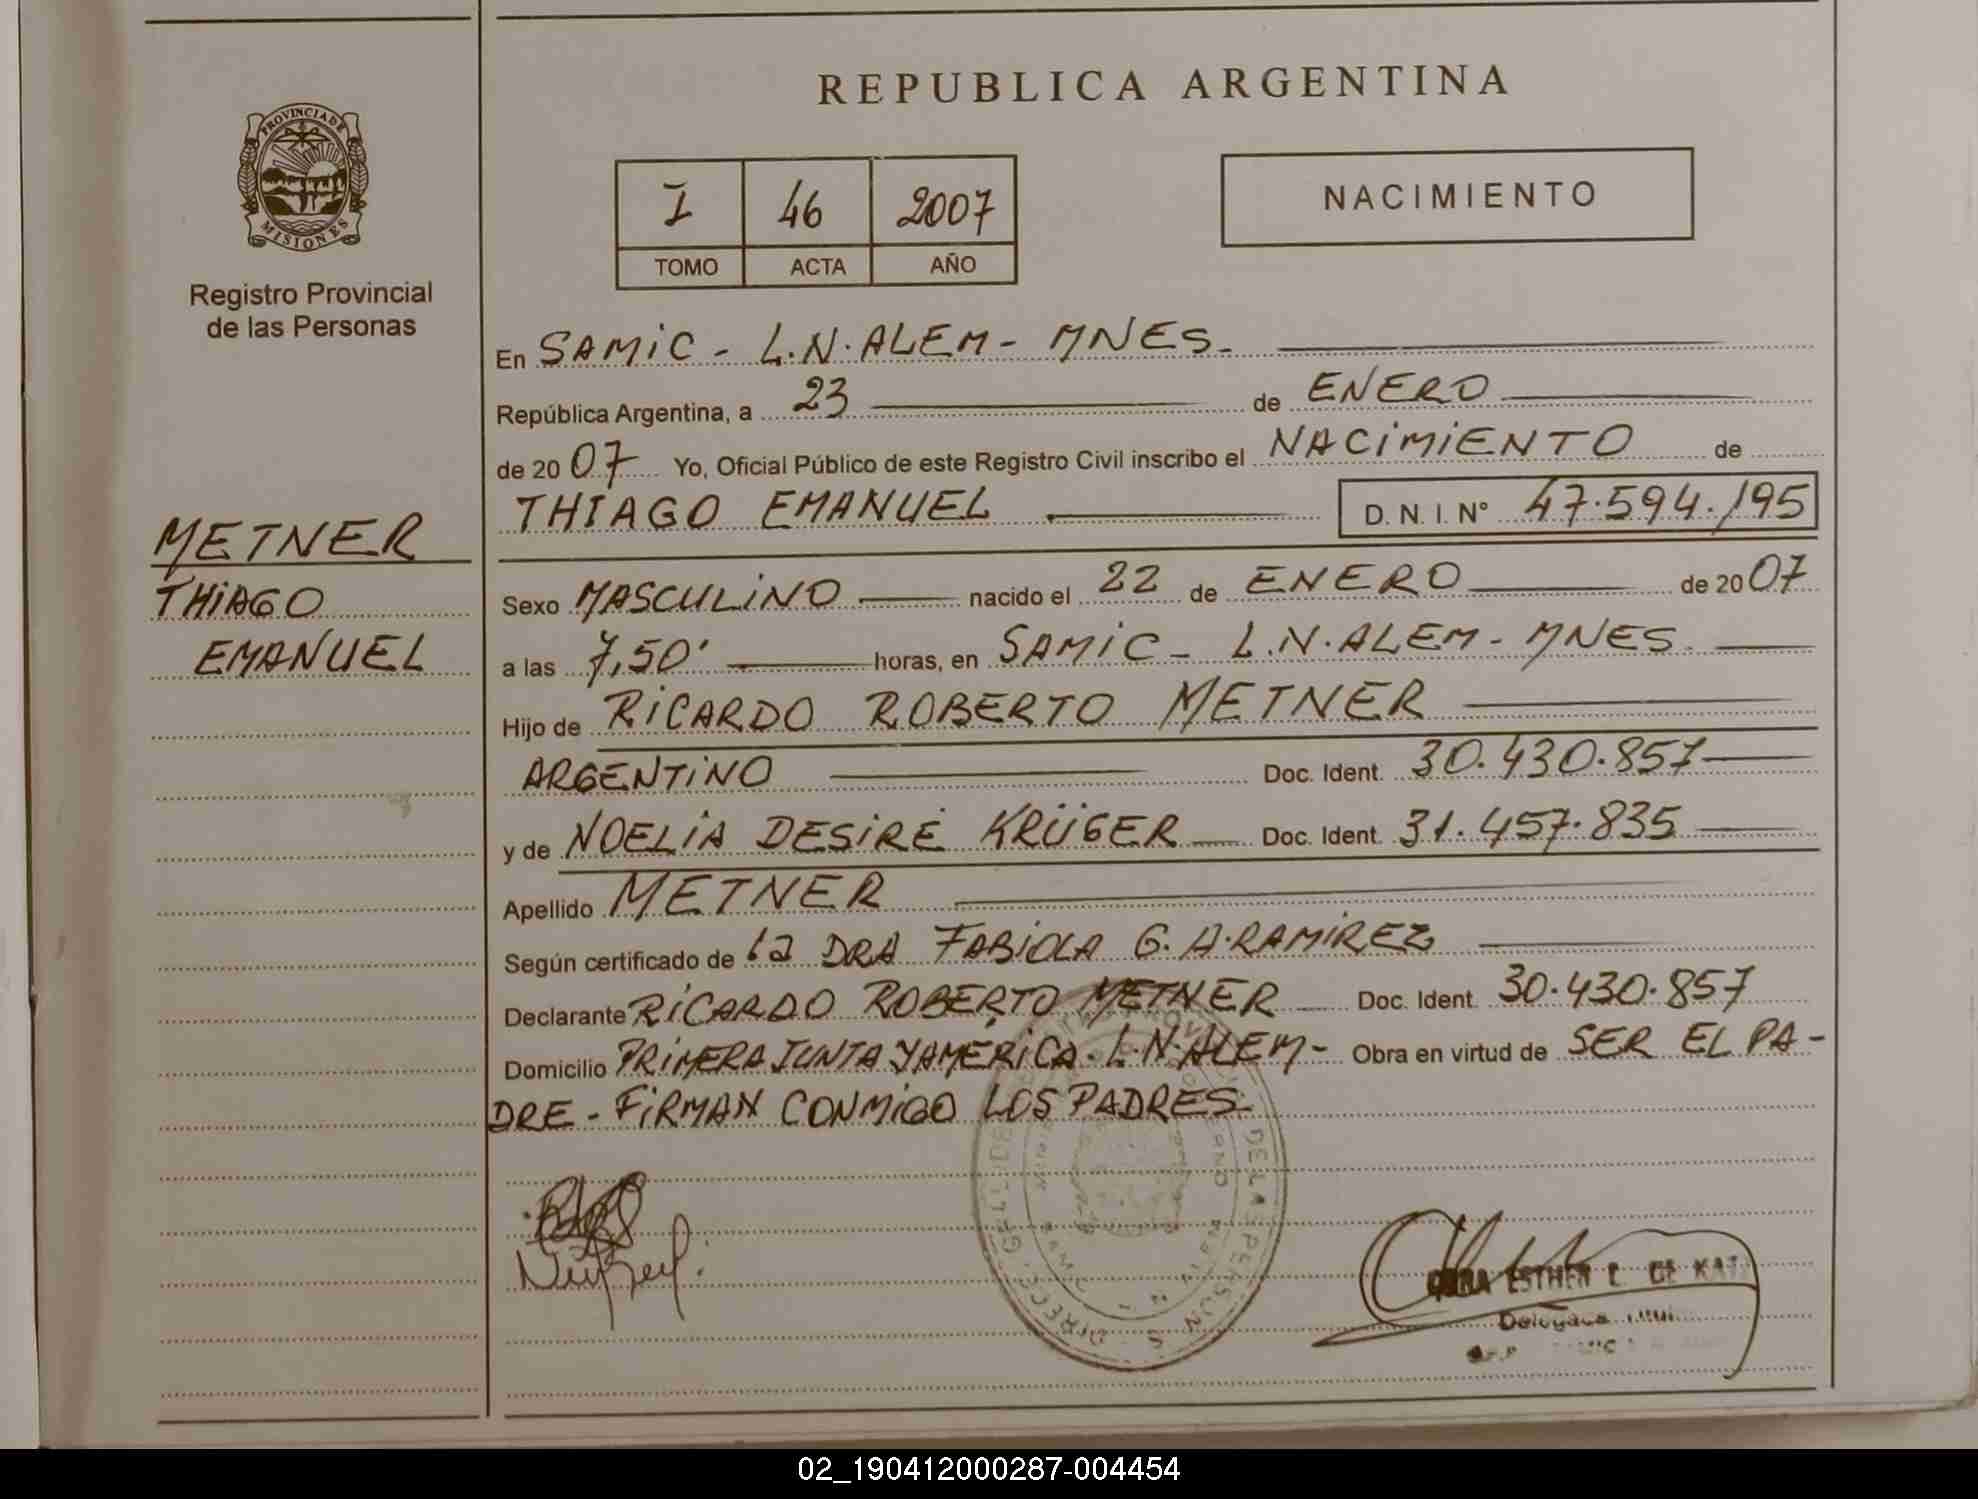 REPUBLICA ARGENTINA
PROVINCIA DE MISIONES
Registro Provincial
de las Personas
I 46 2007
TOMO ACTA AÑO
NACIMIENTO
En SAMIC - L.N. ALEM - MNES.
República Argentina, a 23 de ENERO
de 2007 Yo, Oficial Público de este Registro Civil inscribo el NACIMIENTO de
THIAGO EMANUEL D. N. I. N° 47.594.195
METNER
THIAGO
EMANUEL
Sexo MASCULINO nacido el 22 de ENERO de 2007
a las 7,50' horas, en SAMIC - L.N. ALEM - MNES.
Hijo de RICARDO ROBERTO METNER
ARGENTINO Doc. Ident. 30.430.857
y de NOELIA DESIRÉ KRÜGER Doc. Ident. 31.457.835
Apellido METNER
Según certificado de la DRA FABIOLA G. A. RAMIREZ
Declarante RICARDO ROBERTO METNER Doc. Ident. 30.430.857
Domicilio PRIMERA JUNTA Y AMERICA. L.N. ALEM - Obra en virtud de SER EL PA-
DRE - FIRMAN CONMIGO LOS PADRES.
DE LAS PERSONAS
ESTHER DE
02_190412000287-004454